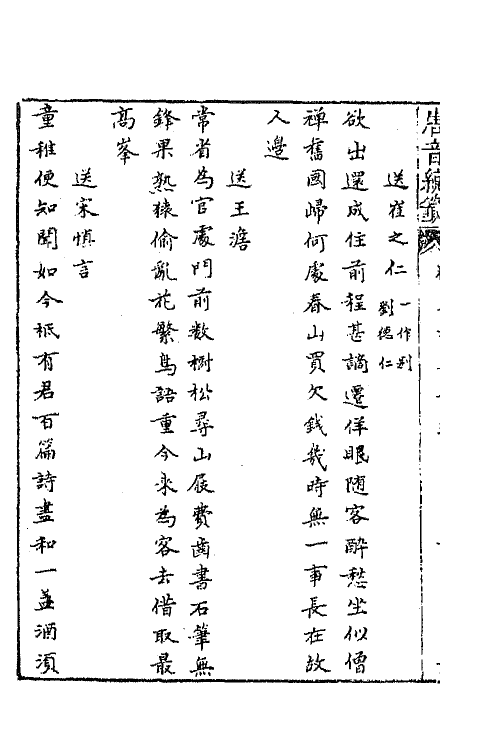 唐音統籤
送崔之仁 一作别劉德仁
欲出還成住前程甚謫遷佯眠随客醉愁坐似僧
禪舊國歸何處春山買欠錢幾時無一事長在故
人邊
送王澹
常省為官處門前數樹松尋山屐費齒書石筆無
鋒果熟猿偷亂花繁鳥語重今來為客去借取最
高峯
送宋慎言
童稚便知聞如今祇有君百篇詩盡和一盞酒須